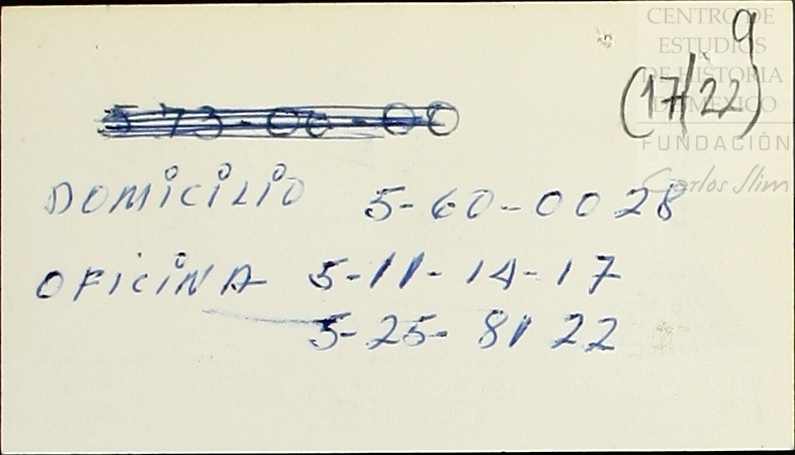 CENTRO DE
ESTUDIOS
DE HISTORIA
DE MÉXICO
FUNDACIÓN
Carlos Slim
9
(17/22)
5 73-00-00
DOMICILIO 5-60-00 28
OFICINA 5-11-14-17
5-25-81 22